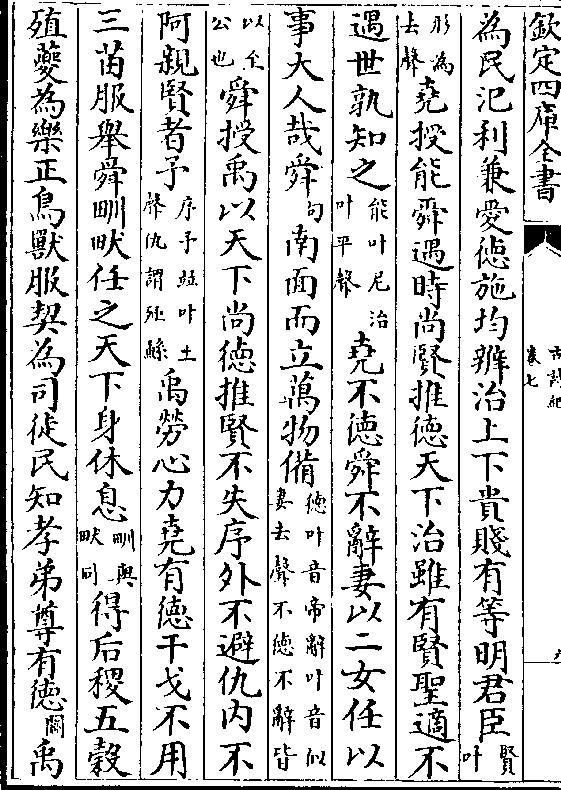 欽定四庫全書
古詩紀
卷七
為民氾利兼愛徳施均辨治上下貴賤有等明君臣賢叶
形為去聲堯授能舜遇時尚賢推徳天下治雖有賢聖適不
遇世孰知之能叶尼治叶平聲堯不徳舜不辭妻以二女任以
事大人哉舜句南面而立萬物備徳叶音帝辭叶音似妻去聲不徳不辭皆
以至公也舜授禹以天下尚徳推賢不失序外不避仇内不
阿親賢者予序予並叶土聲仇謂殛鯀禹勞心力堯有徳干戈不用
三苗服舉舜甽畎任之天下身休息甽與畎同得后稷五穀
殖夔為樂正鳥獸服契為司徒民知孝弟尊有徳闕禹